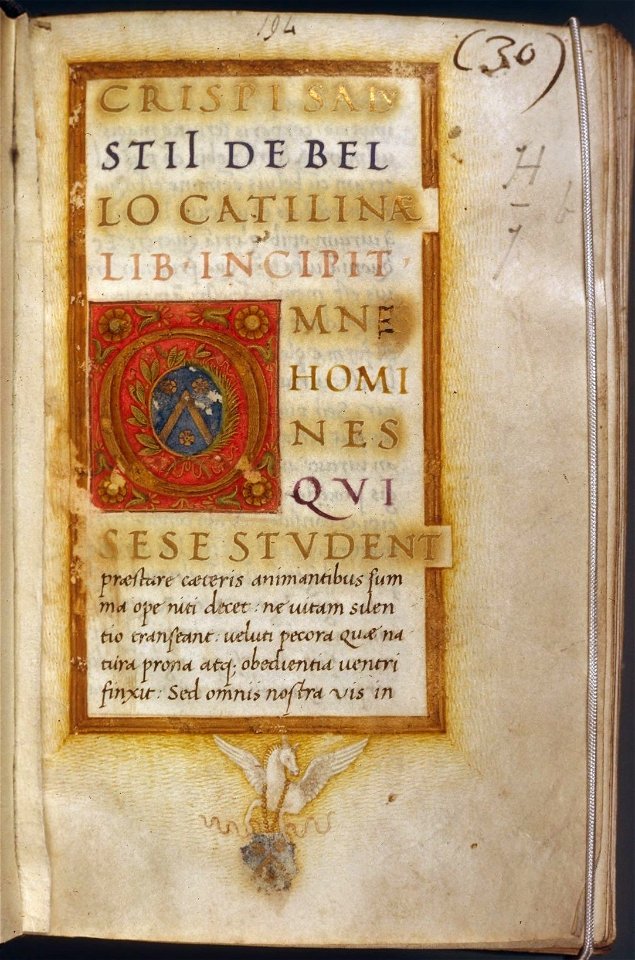 194
(30)
CRISPI SALV
STII DE BEL
LO CATILINÆ
LIB· INCIPIT·
OMNE
HOMI
NES
QVI
SESE STVDENT
præstare cæteris animantibus sum
ma ope niti decet: ne uitam silen
tio transeant: ueluti pecora quæ na
tura prona atq; obedientia uentri
finxit: Sed omnis nostra vis in